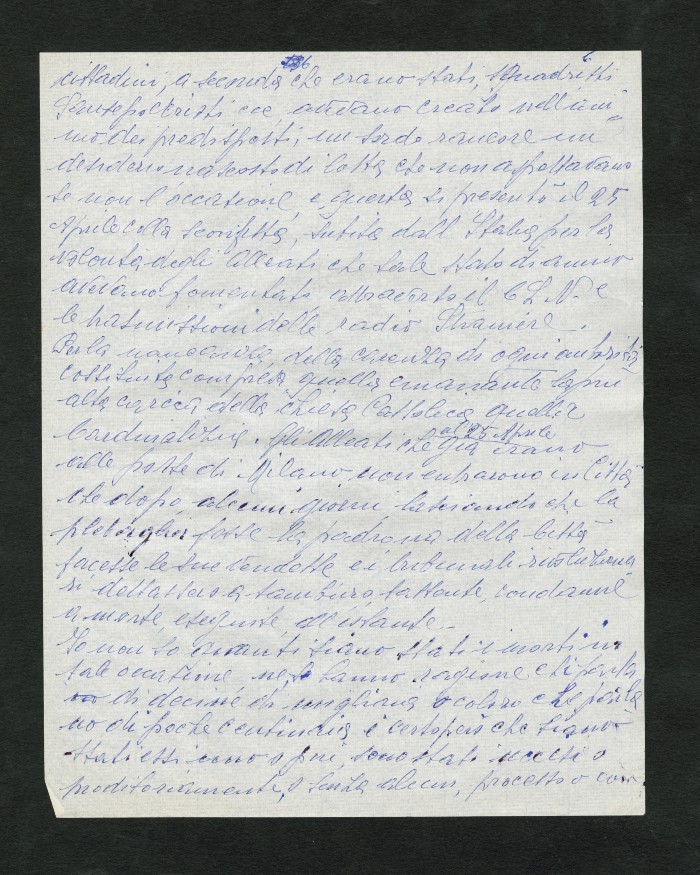 6
cittadini, a seconda che erano stati, squadristi
Sansepolcristi ecc avevano creato nell'ani=
mo dei predisposti, un sordo rancore un
desiderio nascosto di lotta che non aspettavano
se non l'occasione e questa si presentò il 25
Aprile colla sconfitta, subita dall'Italia per la
volontà degli Alleati che tale stato di animo
avevano fomentato attraverso il C.L.N. e
le trasmissioni delle radio Straniere.
Per la mancanza, della carenza di ogni autorità
costituita compresa quella emanante la più
alta carica della Chiesa Cattolica quella
Cardinalizia. Gli Alleati che già erano
al 25 Aprile
alle porte di Milano, non entrarono in Città
che dopo alcuni giorni lasciando che la
plebaglia fosse la padrona della Città
facesse le sue vendette e i tribunali rivoluziona
ri dettassero a tamburo battente, condanne
a morte, eseguite all'istante.
Io non so quanti siano stati i morti in
tale occasione ne se hanno ragione chi parla
di decine di migliaia o coloro che parla
no di poche centinaia è certo però che siano
stati essi uno o più, sono stati uccisi o
proditoriamente, o senza alcun, processo o con